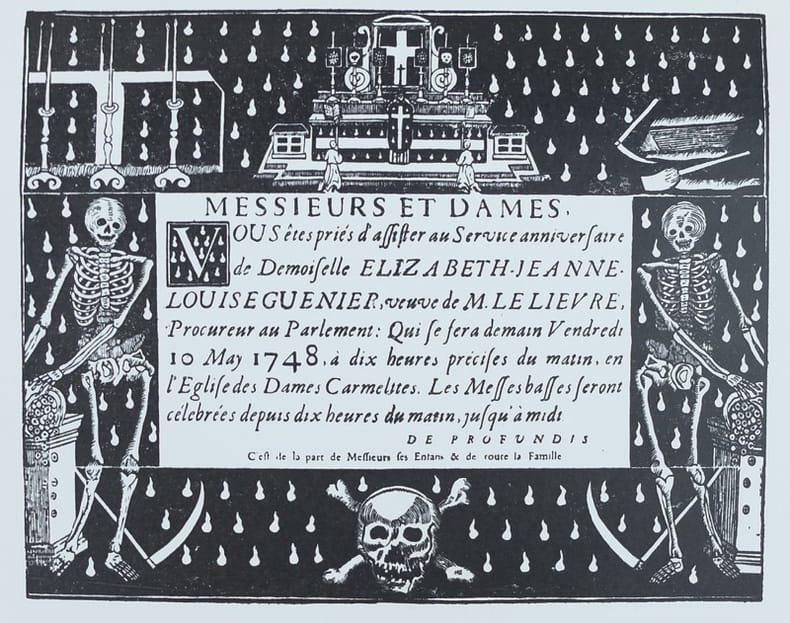 MESSIEURS ET DAMES,
VOUS êtes priés d'aſſiſter au Service anniverſaire
de Demoiſelle ELIZABETH-JEANNE-
LOUISE GUENIER, veuve de M. LE LIEVRE,
Procureur au Parlement: Qui ſe fera demain Vendredi
10 May 1748, à dix heures préciſes du matin, en
l'Egliſe des Dames Carmelites. Les Meſſes baſſes ſeront
célébrées depuis dix heures du matin, juſqu'à midi
DE PROFUNDIS
C'eſt de la part de Meſſieurs ſes Enfans & de toute la Famille